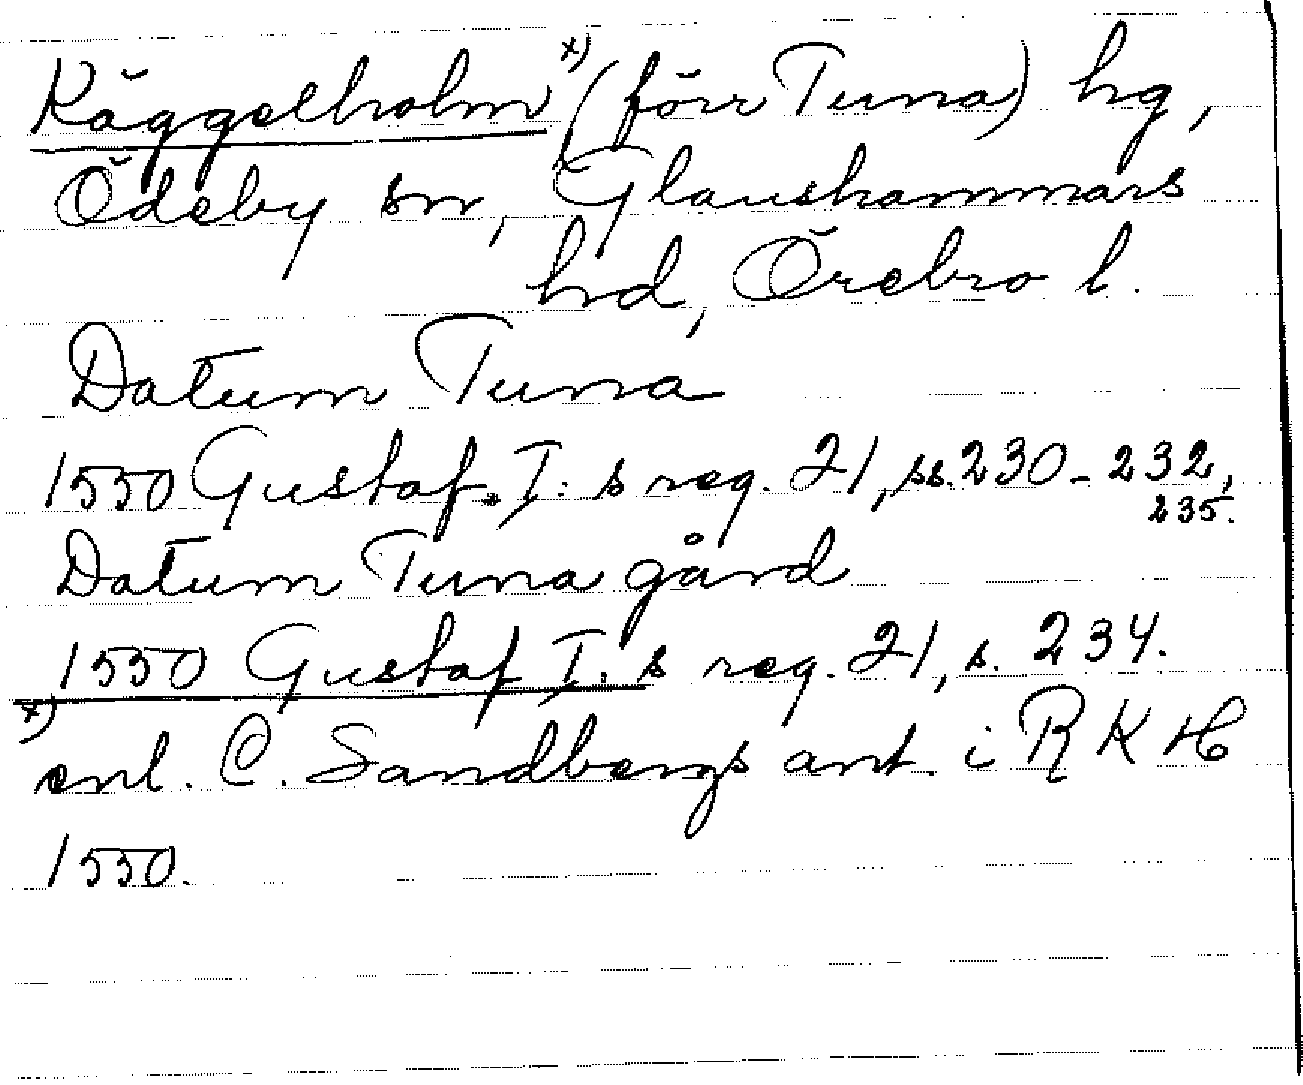 Käggelholm x) (förr Tuna) hg,
Ödeby sn, Glanshammars
hd, Örebro l.
Datum Tuna
1550 Gustaf I:s reg. 21, ss. 230-232,
235.
Datum Tuna gård
1550 Gustaf I:s reg. 21, s. 234.
x)
enl. C. Sandbergs ant. i RKH
1550.